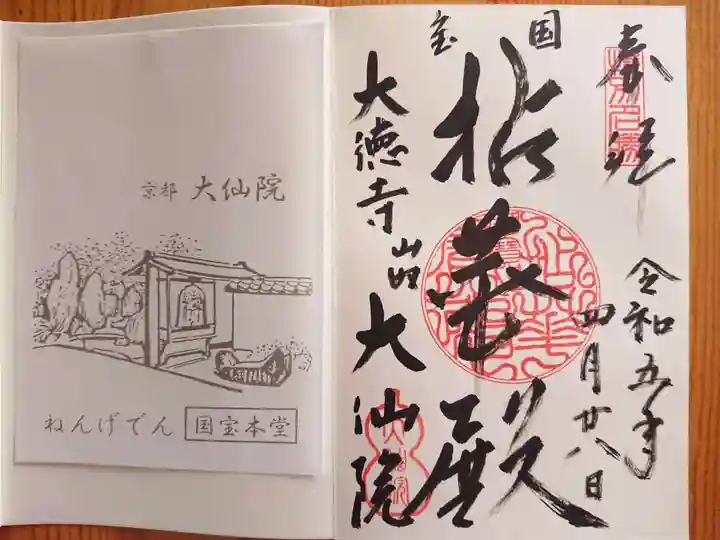 京都 大仙院
ねんげでん 国宝本堂
奉拝
令和五年
四月廿八日
国宝
拈華殿
大徳寺山内
大仙院
大仙院